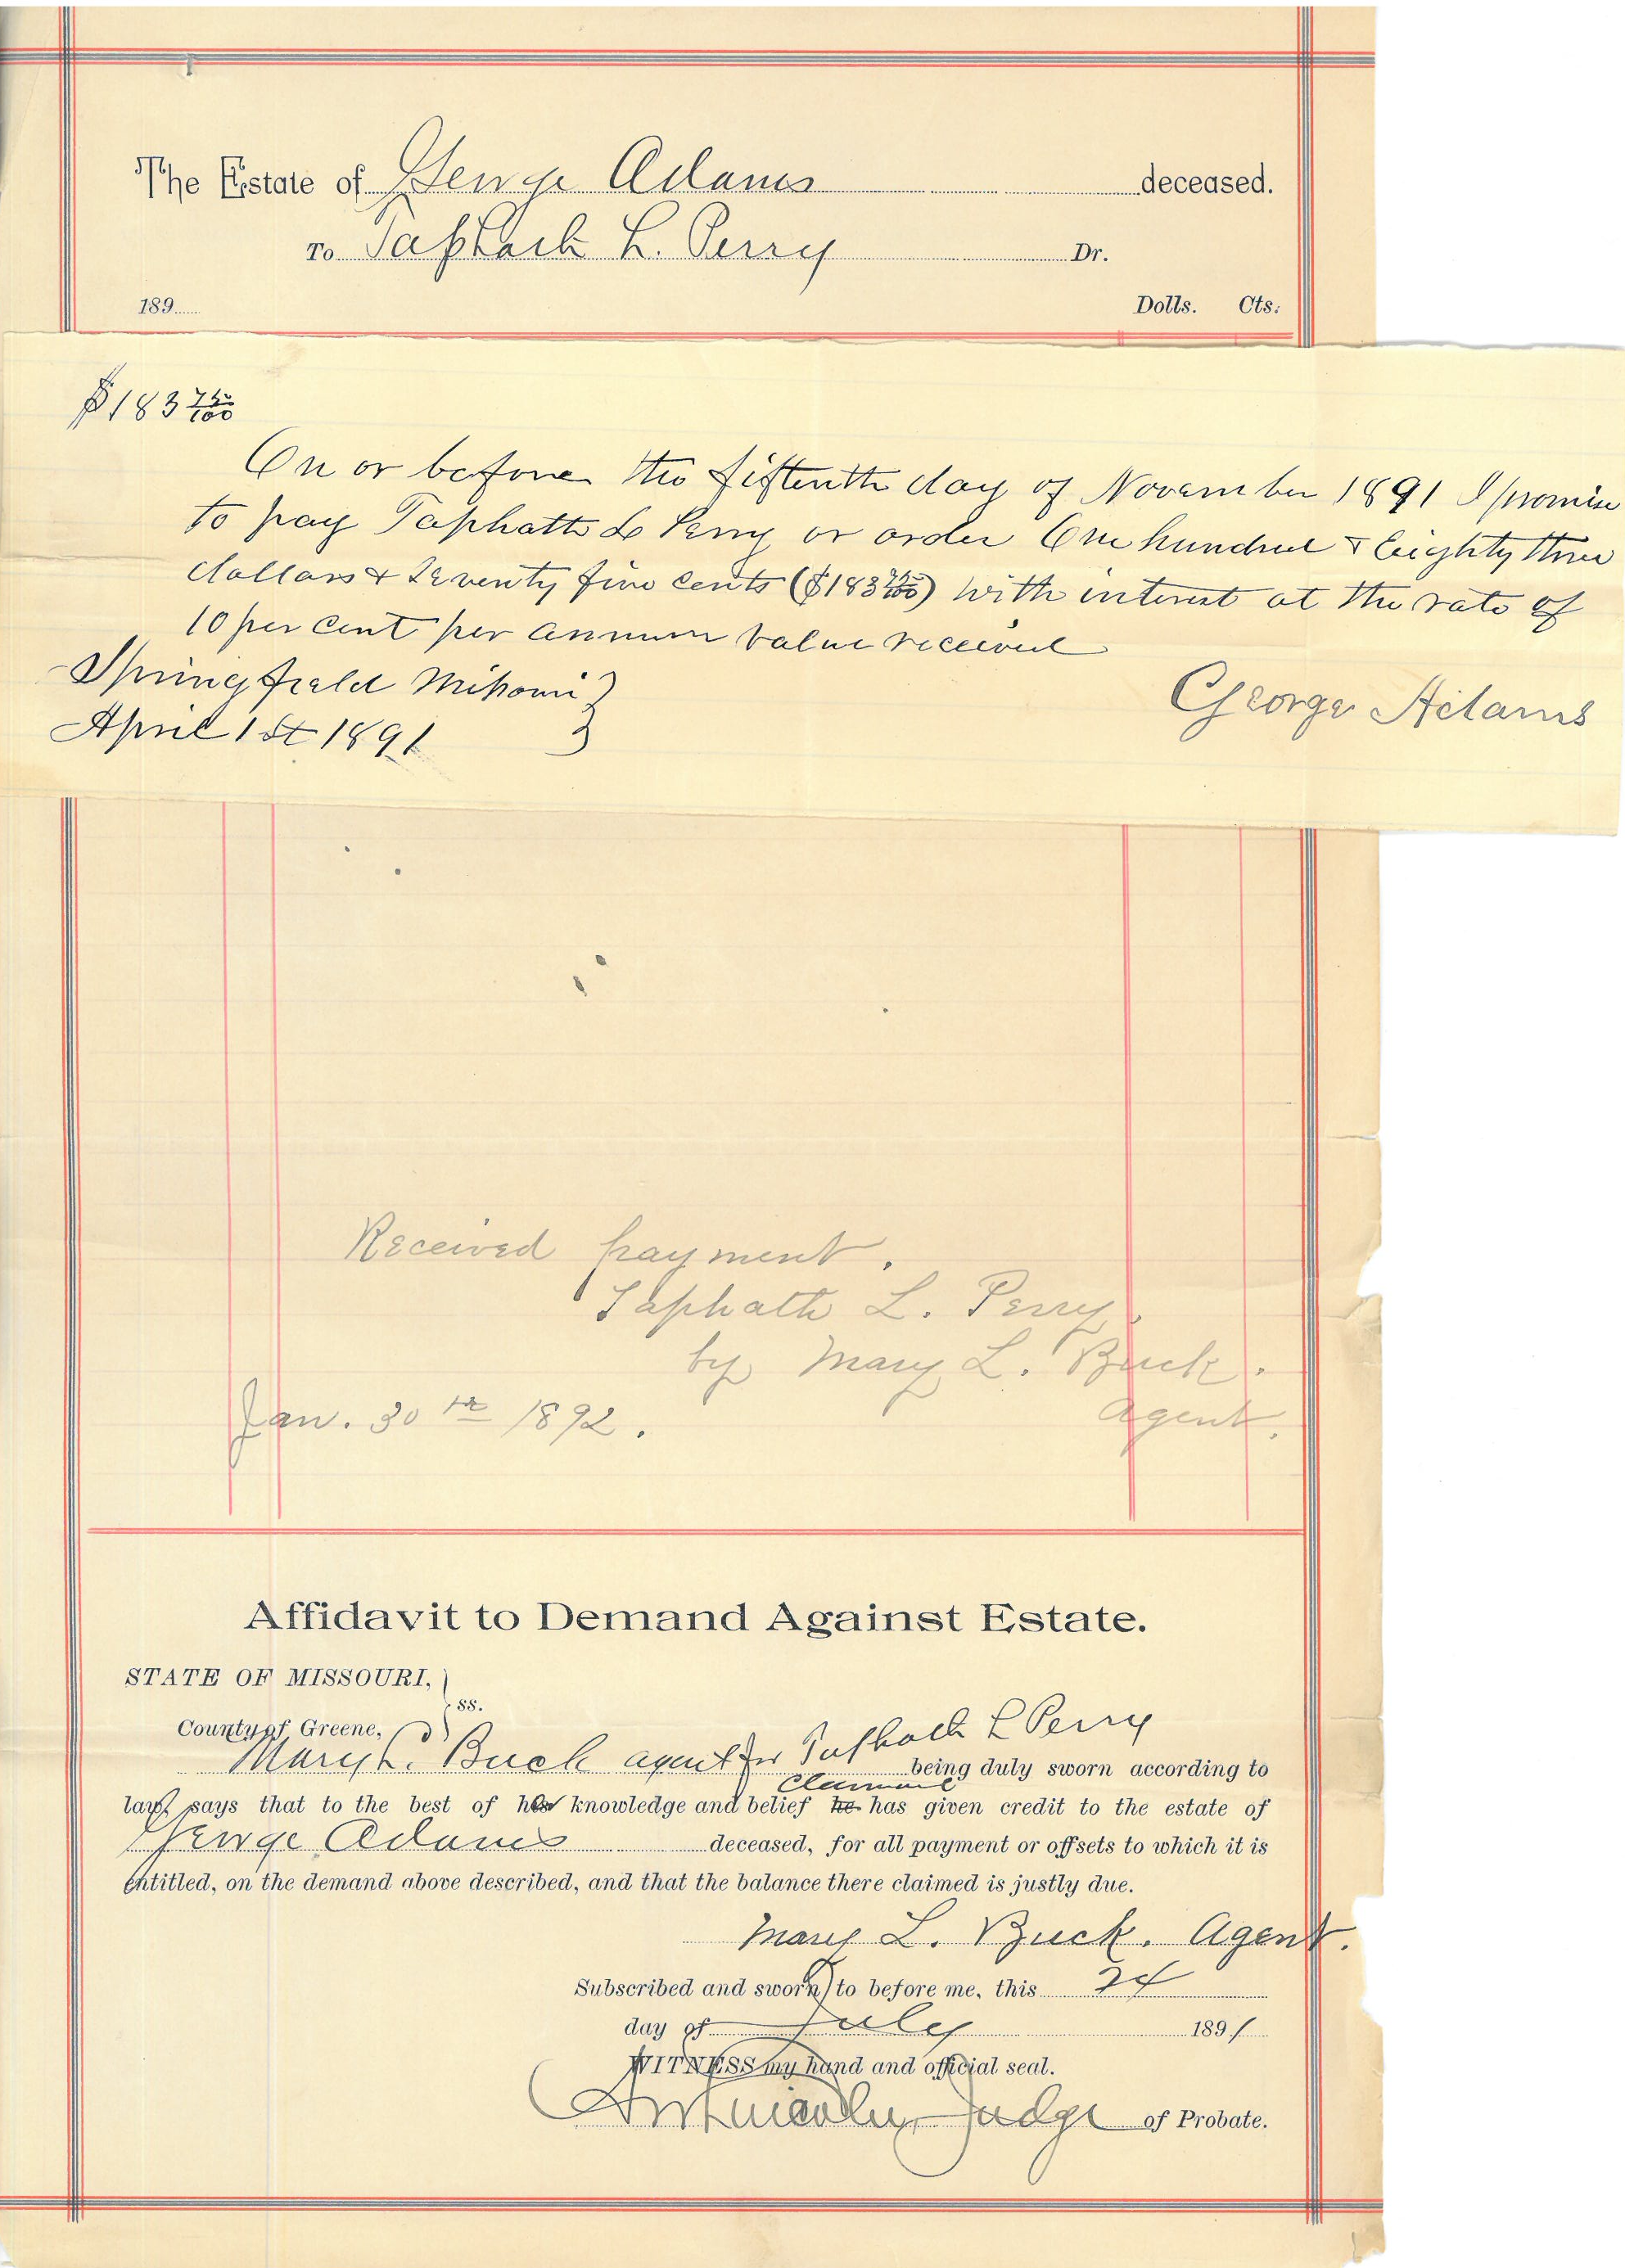 The Estate of George Adams deceased.
To Taphath L. Perry Dr.
189 Dolls. Cts.
$183 75/100
On or before the fifteenth day of November 1891 I promise
to pay Taphath L Perry or order One hundred & Eighty three
dollars & Seventy five cents ($183 75/100) with interest at the rate of
10 per cent per annum value received
Springfield Missouri }
April 1st 1891 }
George Adams
Received payment.
Taphath L. Perry
by Mary L. Buck.
Jan. 30th 1892. Agent.
Affidavit to Demand Against Estate.
STATE OF MISSOURI, }
ss.
County of Greene,
Mary L. Buck agent for Taphath L Perry being duly sworn according to
claimant
law, says that to the best of her knowledge and belief he has given credit to the estate of
George Adams deceased, for all payment or offsets to which it is
entitled, on the demand above described, and that the balance there claimed is justly due.
Mary L. Buck. Agent.
Subscribed and sworn to before me, this 24
day of July 1891
WITNESS my hand and official seal.
Judge of Probate.